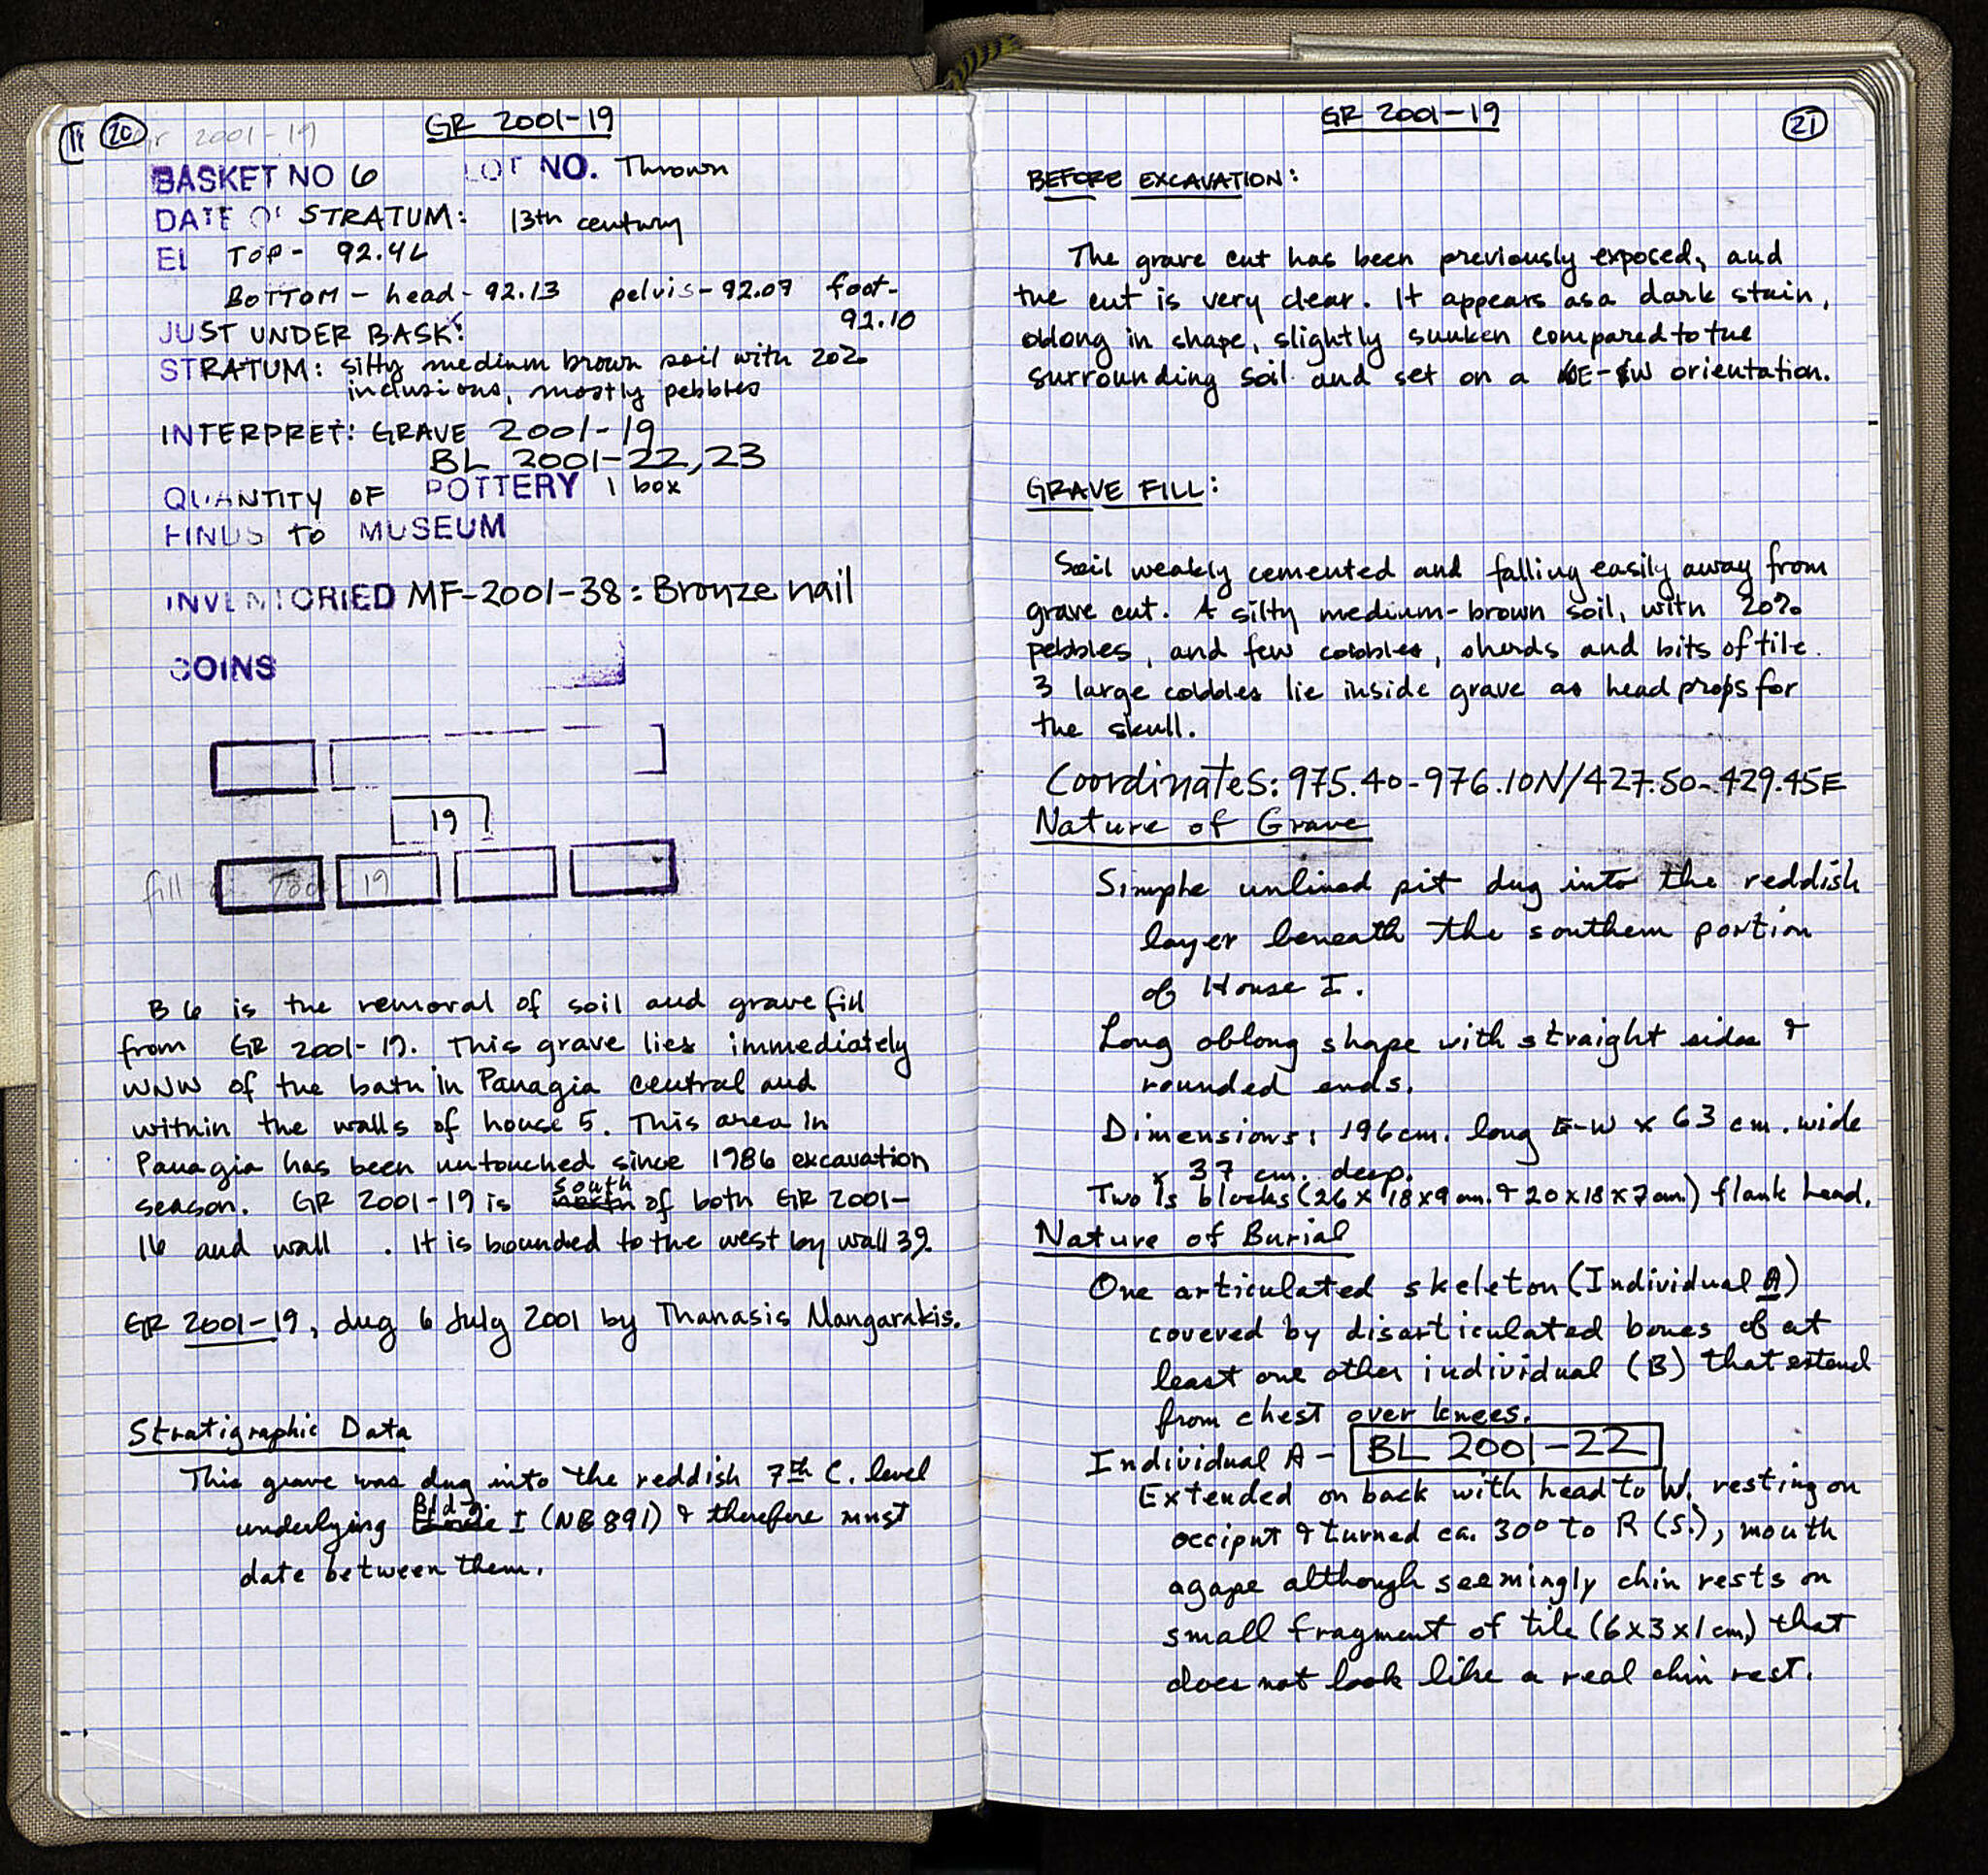 11 20 Gr 2001-19 GR 2001-19
BASKET NO 6 LOT NO. Thrown
DATE OF STRATUM: 13th century
El TOP - 92.46
BOTTOM - head - 92.13 pelvis - 92.07 foot-
92.10
JUST UNDER BASK:
STRATUM: silty medium brown soil with 20%
inclusions, mostly pebbles
INTERPRET: GRAVE 2001-19
BL 2001-22, 23
QUANTITY OF POTTERY 1 box
FINDS TO MUSEUM
INVENTORIED MF-2001-38: Bronze nail
COINS
19
fill 19
B6 is the removal of soil and grave fill
from GR 2001-19. This grave lies immediately
WNW of the bath in Panagia central and
within the walls of house 5. This area in
Panagia has been untouched since 1986 excavation
season. GR 2001-19 is south of both GR 2001-
16 and wall . It is bounded to the west by wall 39.
GR 2001-19, dug 6 July 2001 by Thanasis Mangarakis.
Stratigraphic Data
This grave was dug into the reddish 7th C. level
underlying Bldg I (NB 891) & therefore must
date between them.
GR 2001-19 21
BEFORE EXCAVATION:
The grave cut has been previously exposed, and
the cut is very clear. It appears as a dark stain,
oblong in shape, slightly sunken compared to the
surrounding soil and set on a E-W orientation.
GRAVE FILL:
Soil weakly cemented and falling easily away from
grave cut. A silty medium-brown soil, with 20%
pebbles, and few cobbles, sherds and bits of tile.
3 large cobbles lie inside grave as head props for
the skull.
Coordinates: 975.40-976.10N/427.50-429.45E
Nature of Grave
Simple unlined pit dug into the reddish
layer beneath the southern portion
of House I.
Long oblong shape with straight sides &
rounded ends.
Dimensions: 196 cm. long E-W x 63 cm. wide
x 37 cm. deep.
Two ls blocks (26 x 18 x 9 cm. & 20 x 18 x 7 cm.) flank head.
Nature of Burial
One articulated skeleton (Individual A)
covered by disarticulated bones of at
least one other individual (B) that extend
from chest over knees.
Individual A - BL 2001-22
Extended on back with head to W, resting on
occiput & turned ca. 30° to R (S.), mouth
agape although seemingly chin rests on
small fragment of tile (6x3x1 cm.) that
does not look like a real chin rest.